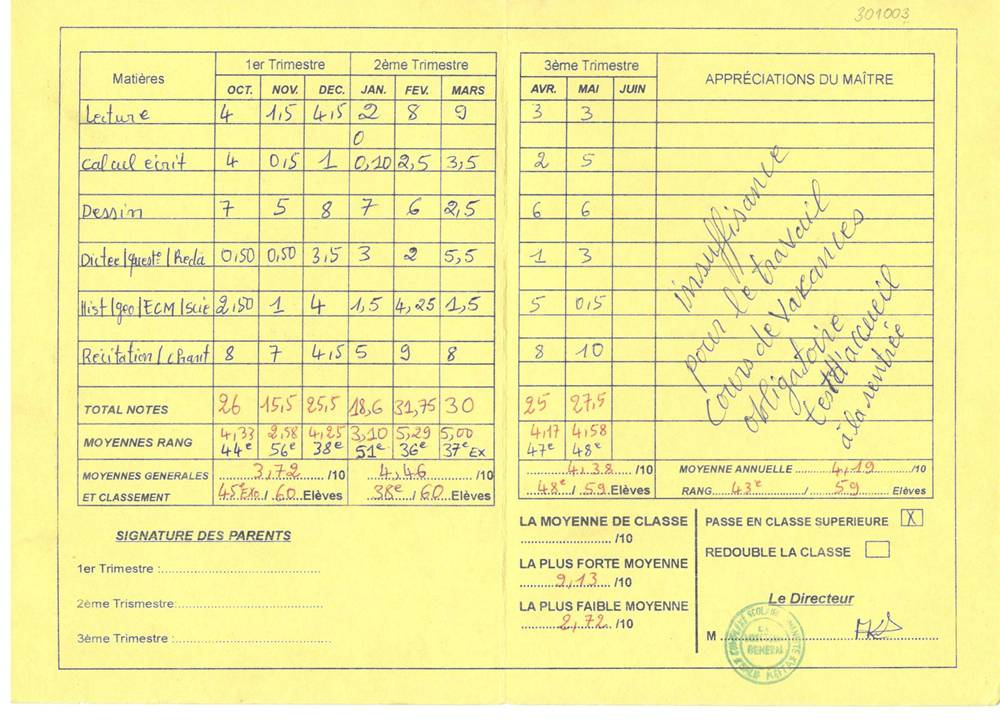 301003
Matières 1er Trimestre 2ème Trimestre
OCT. NOV. DEC. JAN. FEV. MARS
Lecture 4 1,5 4,5 2 8 9
0
Calcul écrit 4 0,5 1 0,10 2,5 3,5
Dessin 7 5 8 7 6 2,5
Dictée/questº/Reda 0,50 0,50 3,5 3 2 5,5
Hist/géo/ECM/Scie 2,50 1 4 1,5 4,25 1,5
Récitation/chant 8 7 4,5 5 9 8
TOTAL NOTES 26 15,5 25,5 18,6 31,75 30
MOYENNES RANG 4,33 2,58 4,25 3,10 5,29 5,00
44e 56e 38e 51e 36e 37e Ex
MOYENNES GENERALES 3,72 /10 4,46 /10
ET CLASSEMENT 45e Exo / 60 Elèves 38e / 60 Elèves
SIGNATURE DES PARENTS
1er Trimestre :
2ème Trismestre:
3ème Trimestre :
3ème Trimestre APPRÉCIATIONS DU MAÎTRE
AVR. MAI JUIN
3 3
2 5
6 6
1 3
5 0,5
8 10
25 27,5
4,17 4,58
47e 48e
4,38 /10
48e / 59 Elèves
insuffisance
pour le travail
Cours de Vakances
obligatoire
test d'accueil
à la rentrée
MOYENNE ANNUELLE 4,19 /10
RANG 43e / 59 Elèves
LA MOYENNE DE CLASSE
/10
LA PLUS FORTE MOYENNE
9,13 /10
LA PLUS FAIBLE MOYENNE
2,72 /10
PASSE EN CLASSE SUPERIEURE X
REDOUBLE LA CLASSE
Le Directeur
M
GENERAL